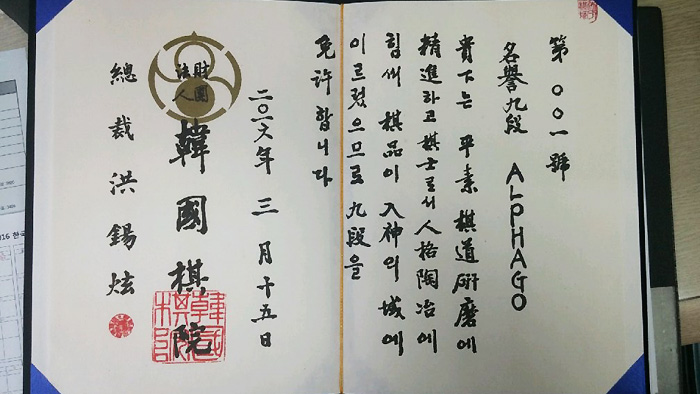 第〇〇一號
名譽九段 ALPHAGO
貴下는 平素 棋道硏磨에
精進하고 棋士로서 人格陶冶에
힘써 棋品이 入神의 域에
이르렀으므로 九段을
免許합니다
二〇一六年 三月 十五日
財團
法人
韓國棋院
總裁 洪錫炫
韓國
棋院